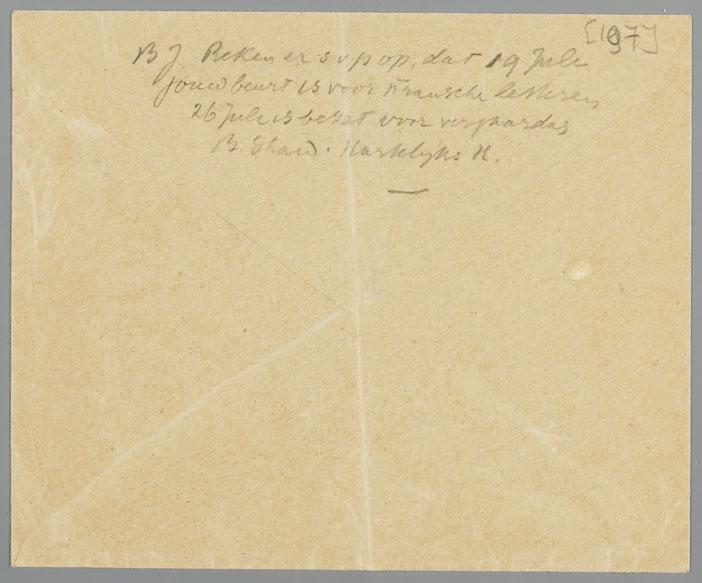 [197]
B J. Reken er s.v.p op, dat 19 Juli
jouw beurt is voor Fransche letteren
26 Juli is bezet voor verjaardag
B. Shaw. Hartelijks N.